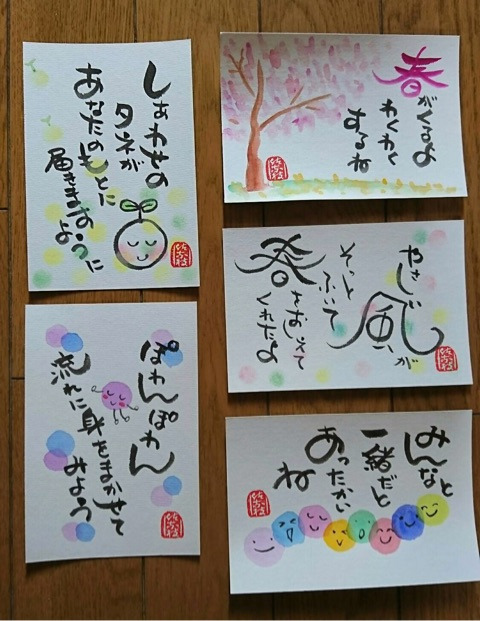 しあわせの
タネが
あなたのもとに
届きますように
春がくるよ
わくわく
するね
やさしい風が
そっと
ふいて
春をおしえて
くれたよ
ぽわんぽわん
流れに身をまかせて
みよう
みんなと
一緒だと
あったかい
ね